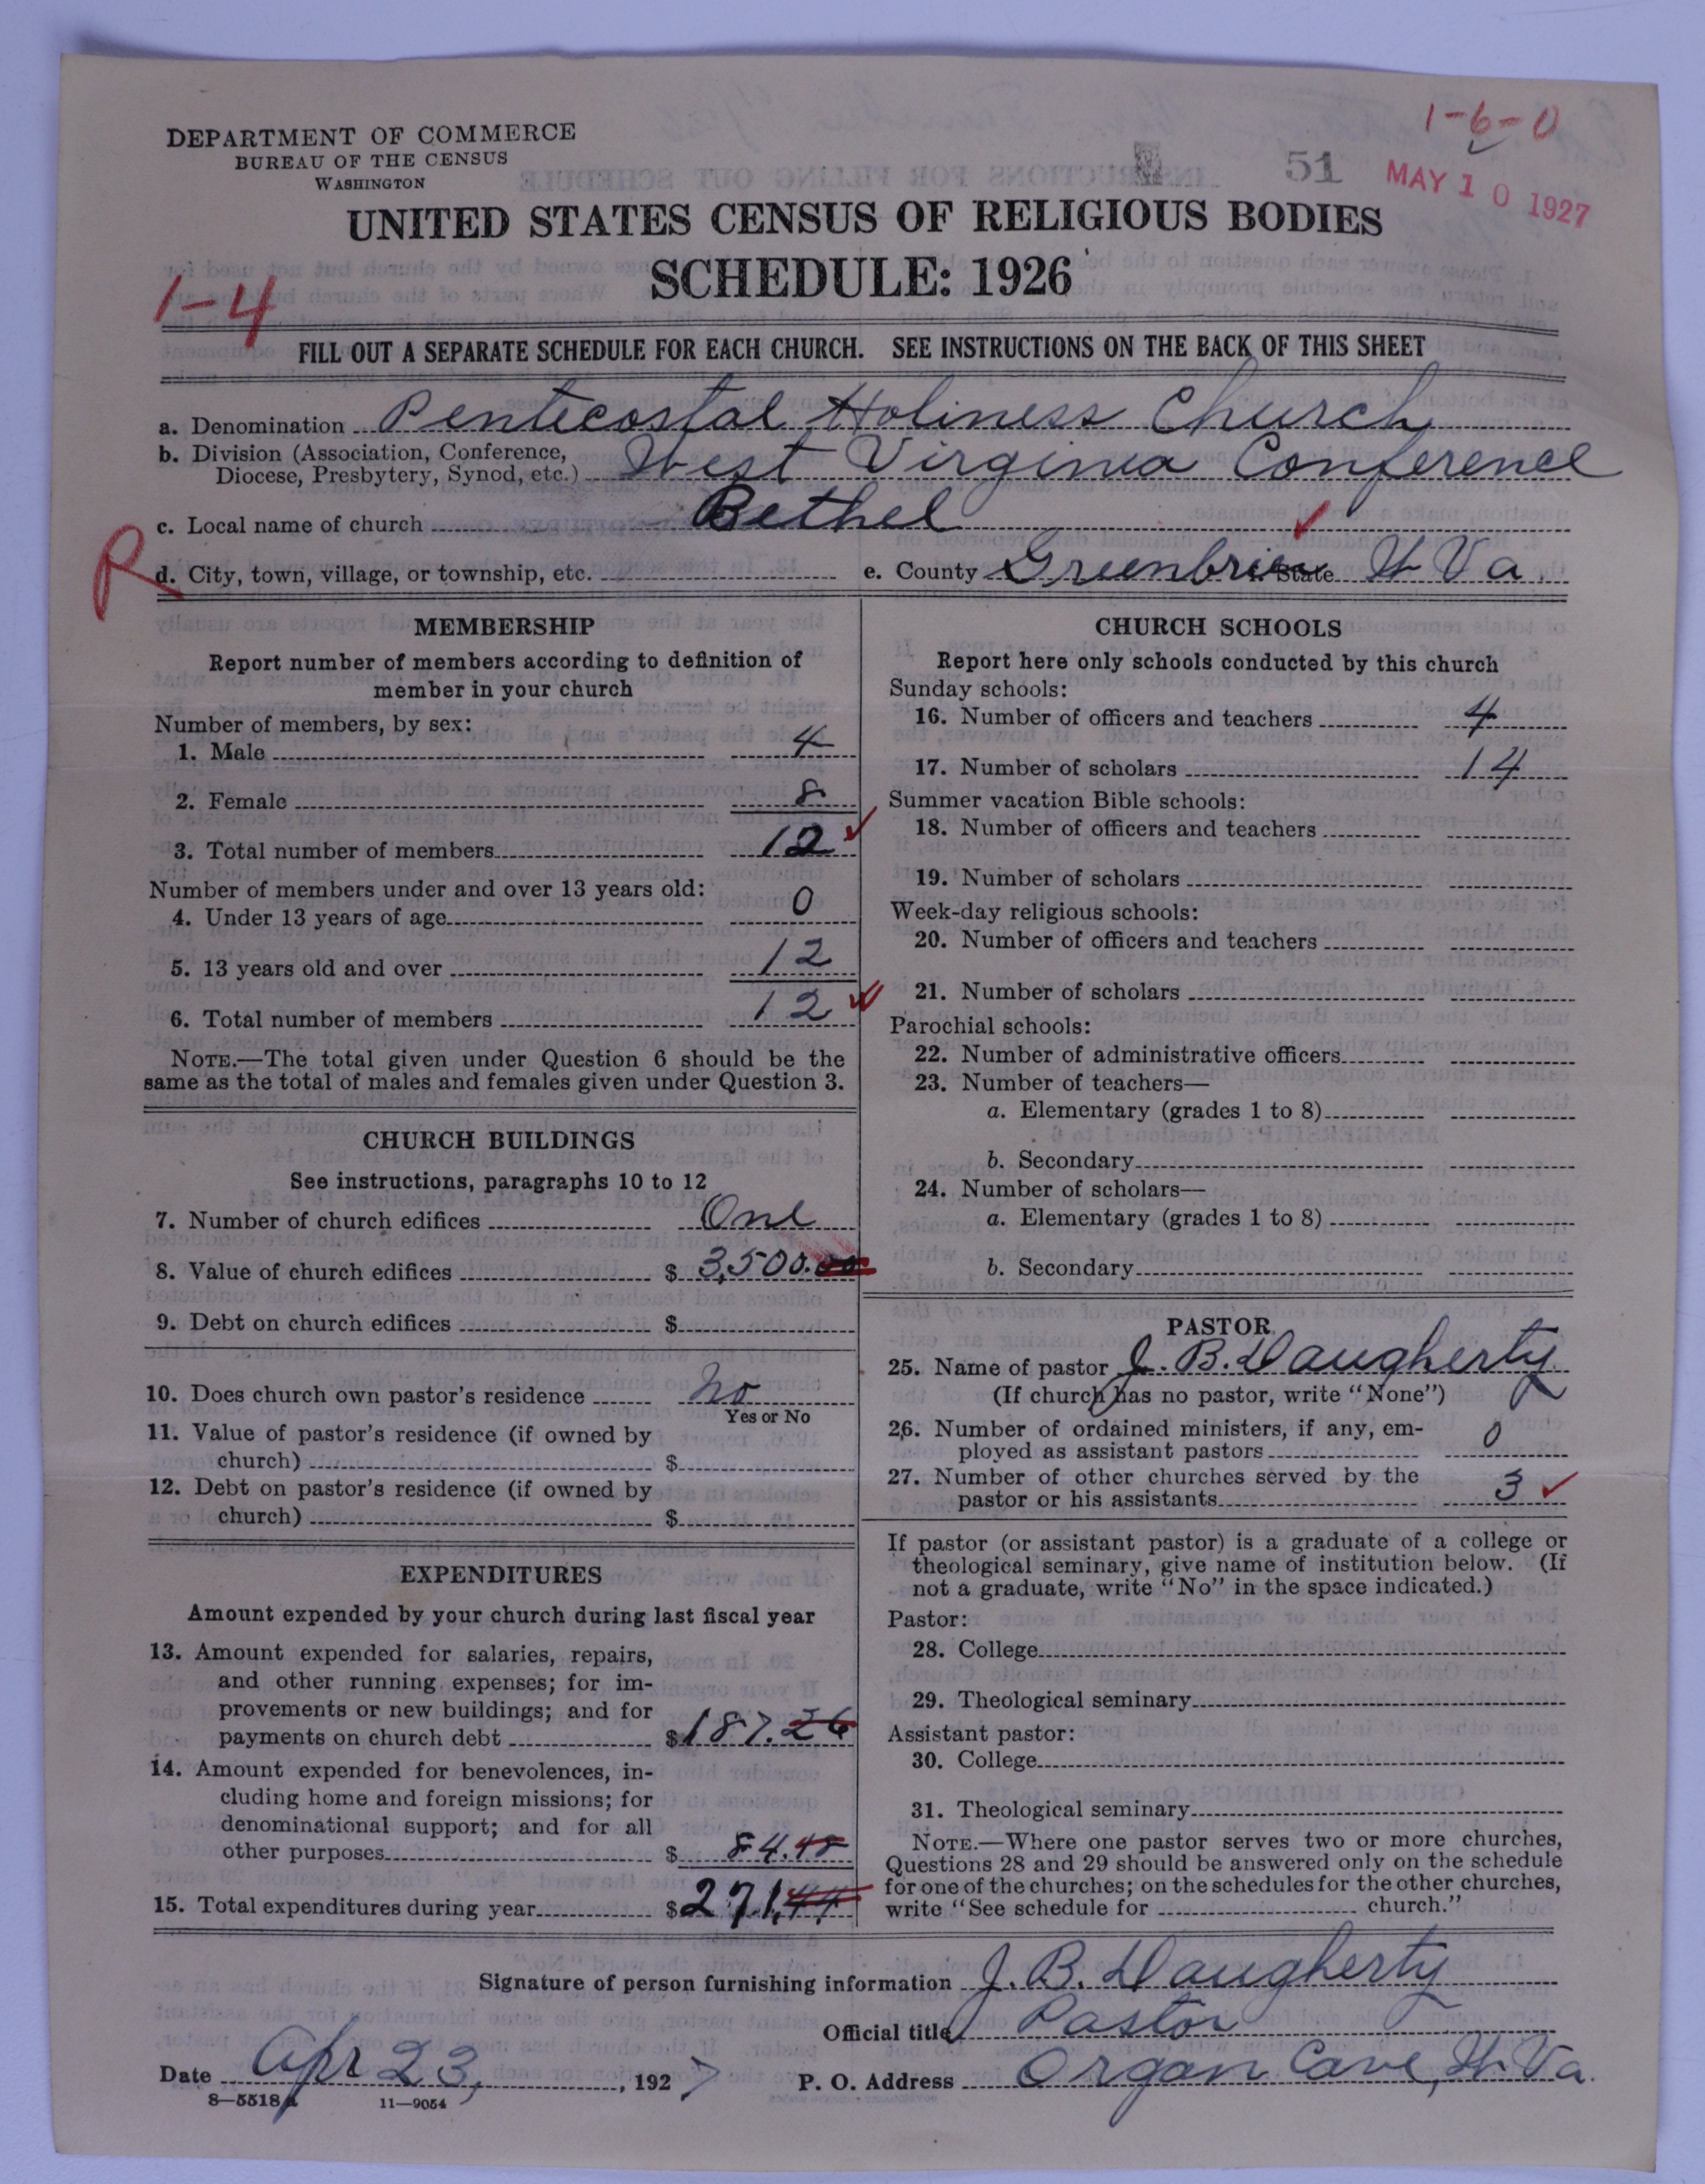 1-6-0
DEPARTMENT OF COMMERCE
BUREAU OF THE CENSUS
WASHINGTON
51
MAY 10 1927
UNITED STATES CENSUS OF RELIGIOUS BODIES
SCHEDULE: 1926
1-4
FILL OUT A SEPARATE SCHEDULE FOR EACH CHURCH. SEE INSTRUCTIONS ON THE BACK OF THIS SHEET
a. Denomination Pentecostal Holiness Church
b. Division (Association, Conference,
Diocese, Presbytery, Synod, etc.) West Virginia Conference
c. Local name of church Bethel
R
d. City, town, village, or township, etc. e. County Greenbrier State W Va.
MEMBERSHIP
Report number of members according to definition of
member in your church
Number of members, by sex:
1. Male 4
2. Female 8
3. Total number of members 12
Number of members under and over 13 years old:
4. Under 13 years of age 0
5. 13 years old and over 12
6. Total number of members 12
NOTE.—The total given under Question 6 should be the
same as the total of males and females given under Question 3.
CHURCH BUILDINGS
See instructions, paragraphs 10 to 12
7. Number of church edifices One
8. Value of church edifices $ 3,500.00
9. Debt on church edifices $
10. Does church own pastor's residence No
Yes or No
11. Value of pastor's residence (if owned by
church) $
12. Debt on pastor's residence (if owned by
church) $
EXPENDITURES
Amount expended by your church during last fiscal year
13. Amount expended for salaries, repairs,
and other running expenses; for im-
provements or new buildings; and for
payments on church debt $187.26
14. Amount expended for benevolences, in-
cluding home and foreign missions; for
denominational support; and for all
other purposes $ 84.18
15. Total expenditures during year $271.44
CHURCH SCHOOLS
Report here only schools conducted by this church
Sunday schools:
16. Number of officers and teachers 4
17. Number of scholars 14
Summer vacation Bible schools:
18. Number of officers and teachers
19. Number of scholars
Week-day religious schools:
20. Number of officers and teachers
21. Number of scholars
Parochial schools:
22. Number of administrative officers
23. Number of teachers—
a. Elementary (grades 1 to 8)
b. Secondary
24. Number of scholars—
a. Elementary (grades 1 to 8)
b. Secondary
PASTOR
25. Name of pastor J. B. Daugherty
(If church has no pastor, write "None")
26. Number of ordained ministers, if any, em-
ployed as assistant pastors 0
27. Number of other churches served by the
pastor or his assistants 3
If pastor (or assistant pastor) is a graduate of a college or
theological seminary, give name of institution below. (If
not a graduate, write "No" in the space indicated.)
Pastor:
28. College
29. Theological seminary
Assistant pastor:
30. College
31. Theological seminary
NOTE.—Where one pastor serves two or more churches,
Questions 28 and 29 should be answered only on the schedule
for one of the churches; on the schedules for the other churches,
write "See schedule for church."
Signature of person furnishing information J. B. Daugherty
Official title Pastor
Date Apr 23, , 1927 P. O. Address Organ Cave, W. Va.
8—5518a 11—9054